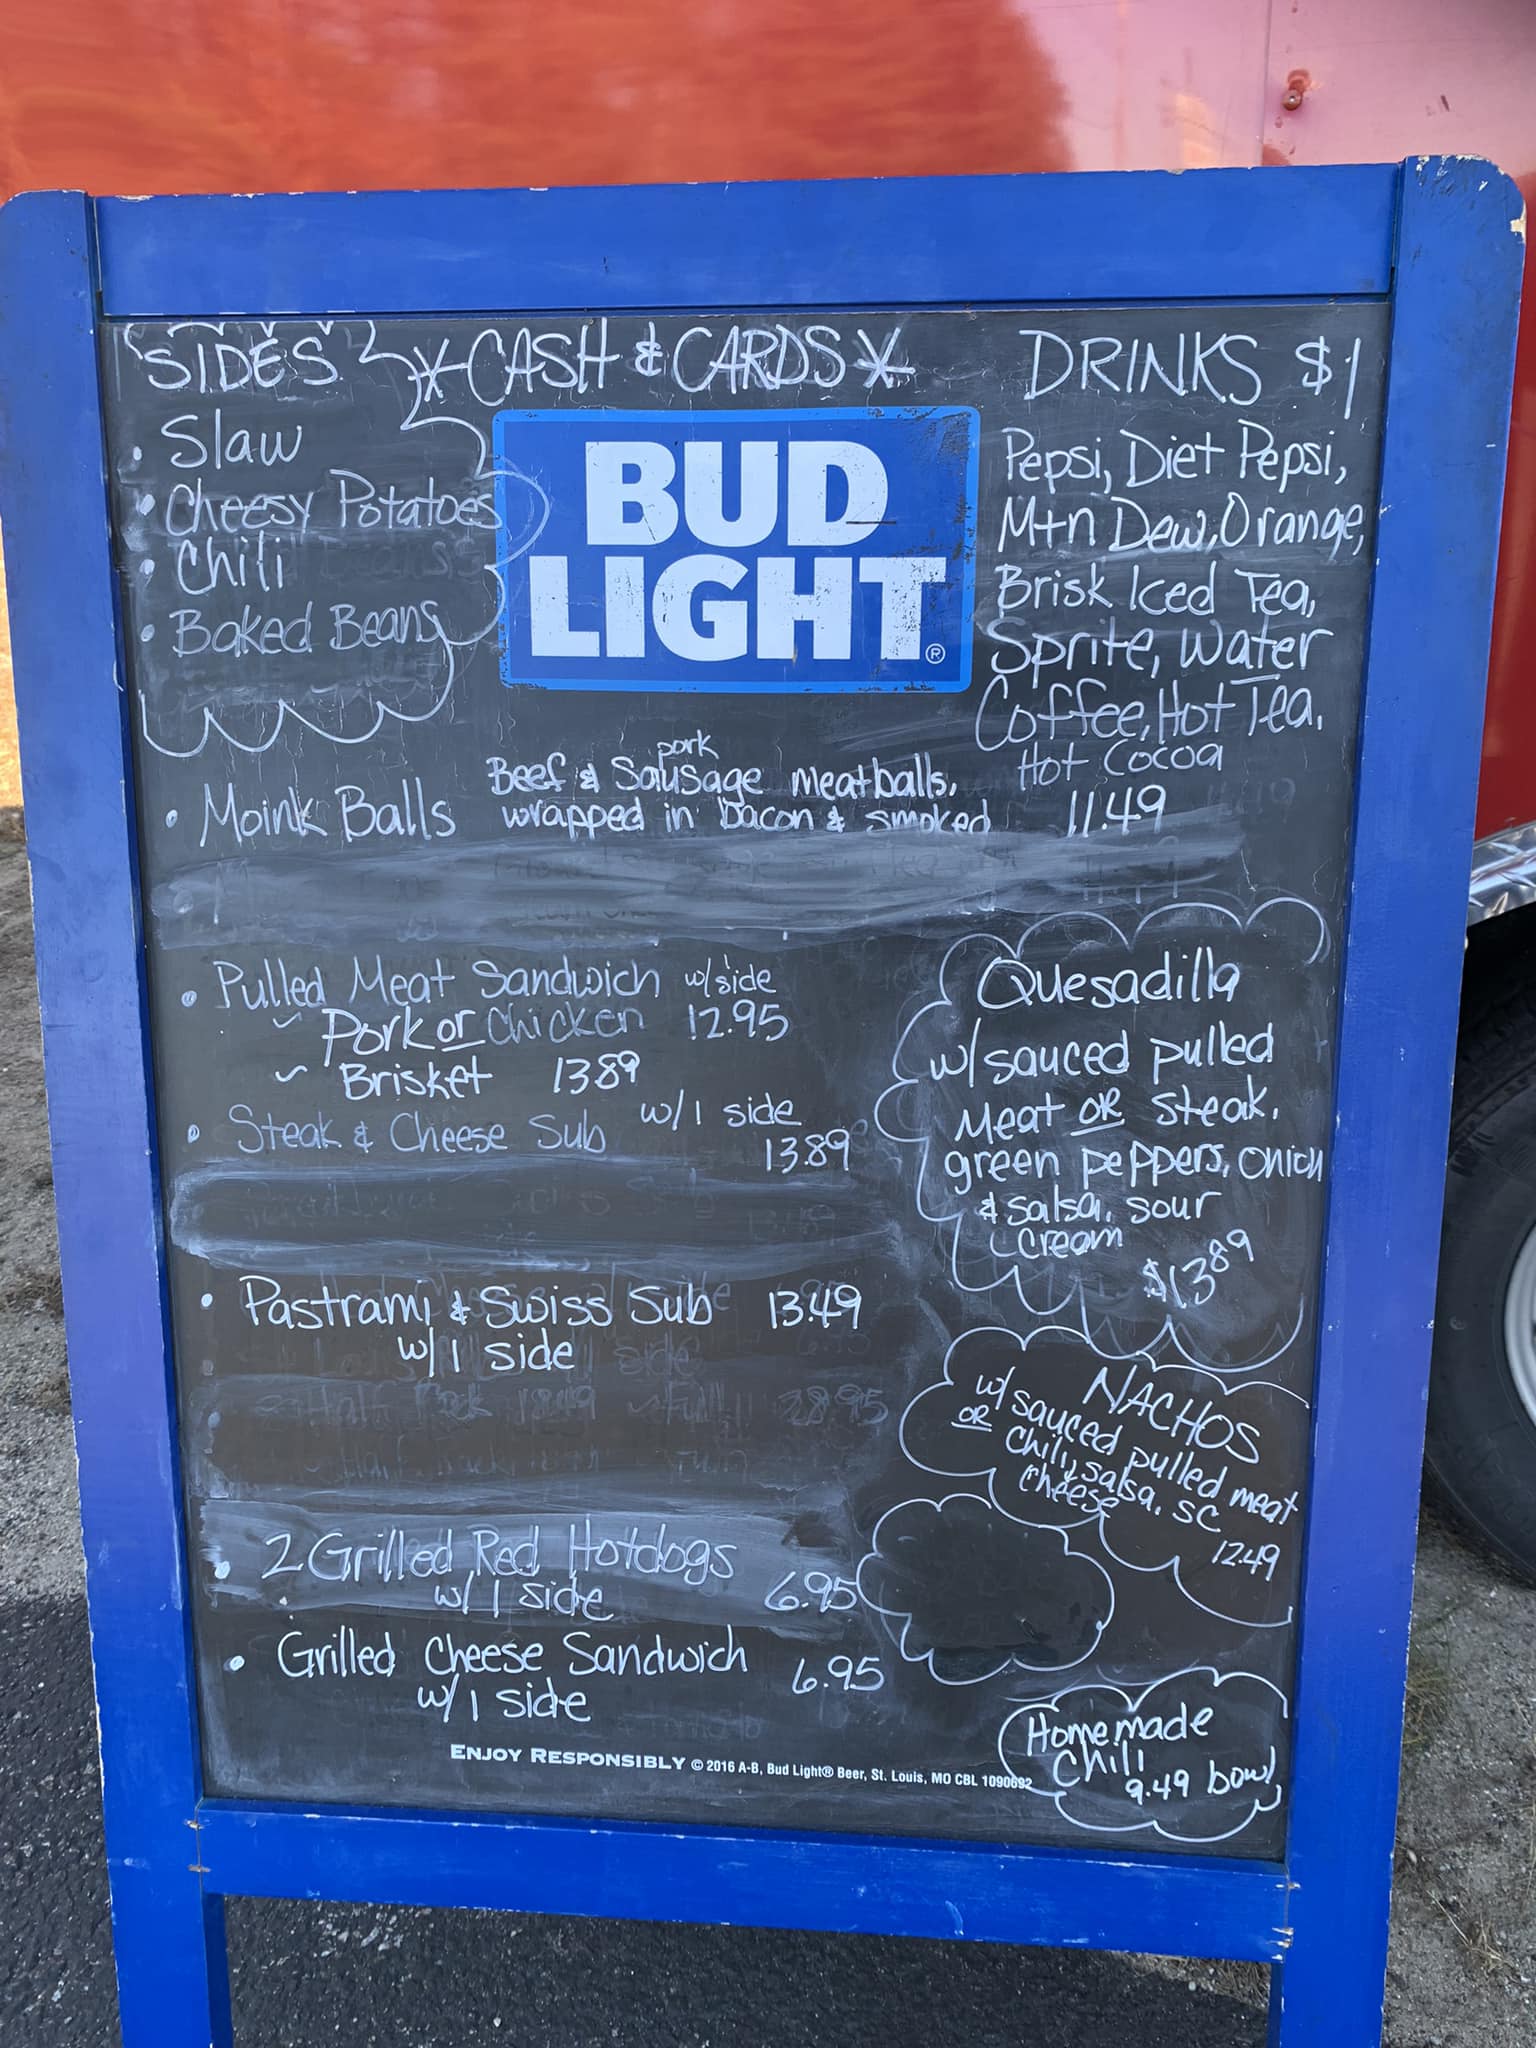 SIDES
• Slaw
• Cheesy Potatoes
• Chili
• Baked Beans
* CASH & CARDS *
BUD
LIGHT®
DRINKS $1
Pepsi, Diet Pepsi,
Mtn Dew, Orange,
Brisk Iced Tea,
Sprite, Water
Coffee, Hot Tea,
Hot Cocoa
• Moink Balls
pork
Beef & Sausage meatballs,
wrapped in bacon & smoked
11.49
• Pulled Meat Sandwich w/side
~ Pork or Chicken 12.95
~ Brisket 13.89
• Steak & Cheese Sub w/1 side
13.89
• Pastrami & Swiss Sub 13.49
w/1 side
• 2 Grilled Red Hotdogs
w/1 side 6.95
• Grilled Cheese Sandwich 6.95
w/1 side
Quesadilla
w/sauced pulled
Meat OR steak,
green peppers, onion
& salsa, sour
cream
$13.89
NACHOS
w/sauced pulled meat
OR chili, salsa, sc
cheese
12.49
Homemade
Chili
9.49 bowl
ENJOY RESPONSIBLY © 2016 A-B, Bud Light® Beer, St. Louis, MO CBL 1090692